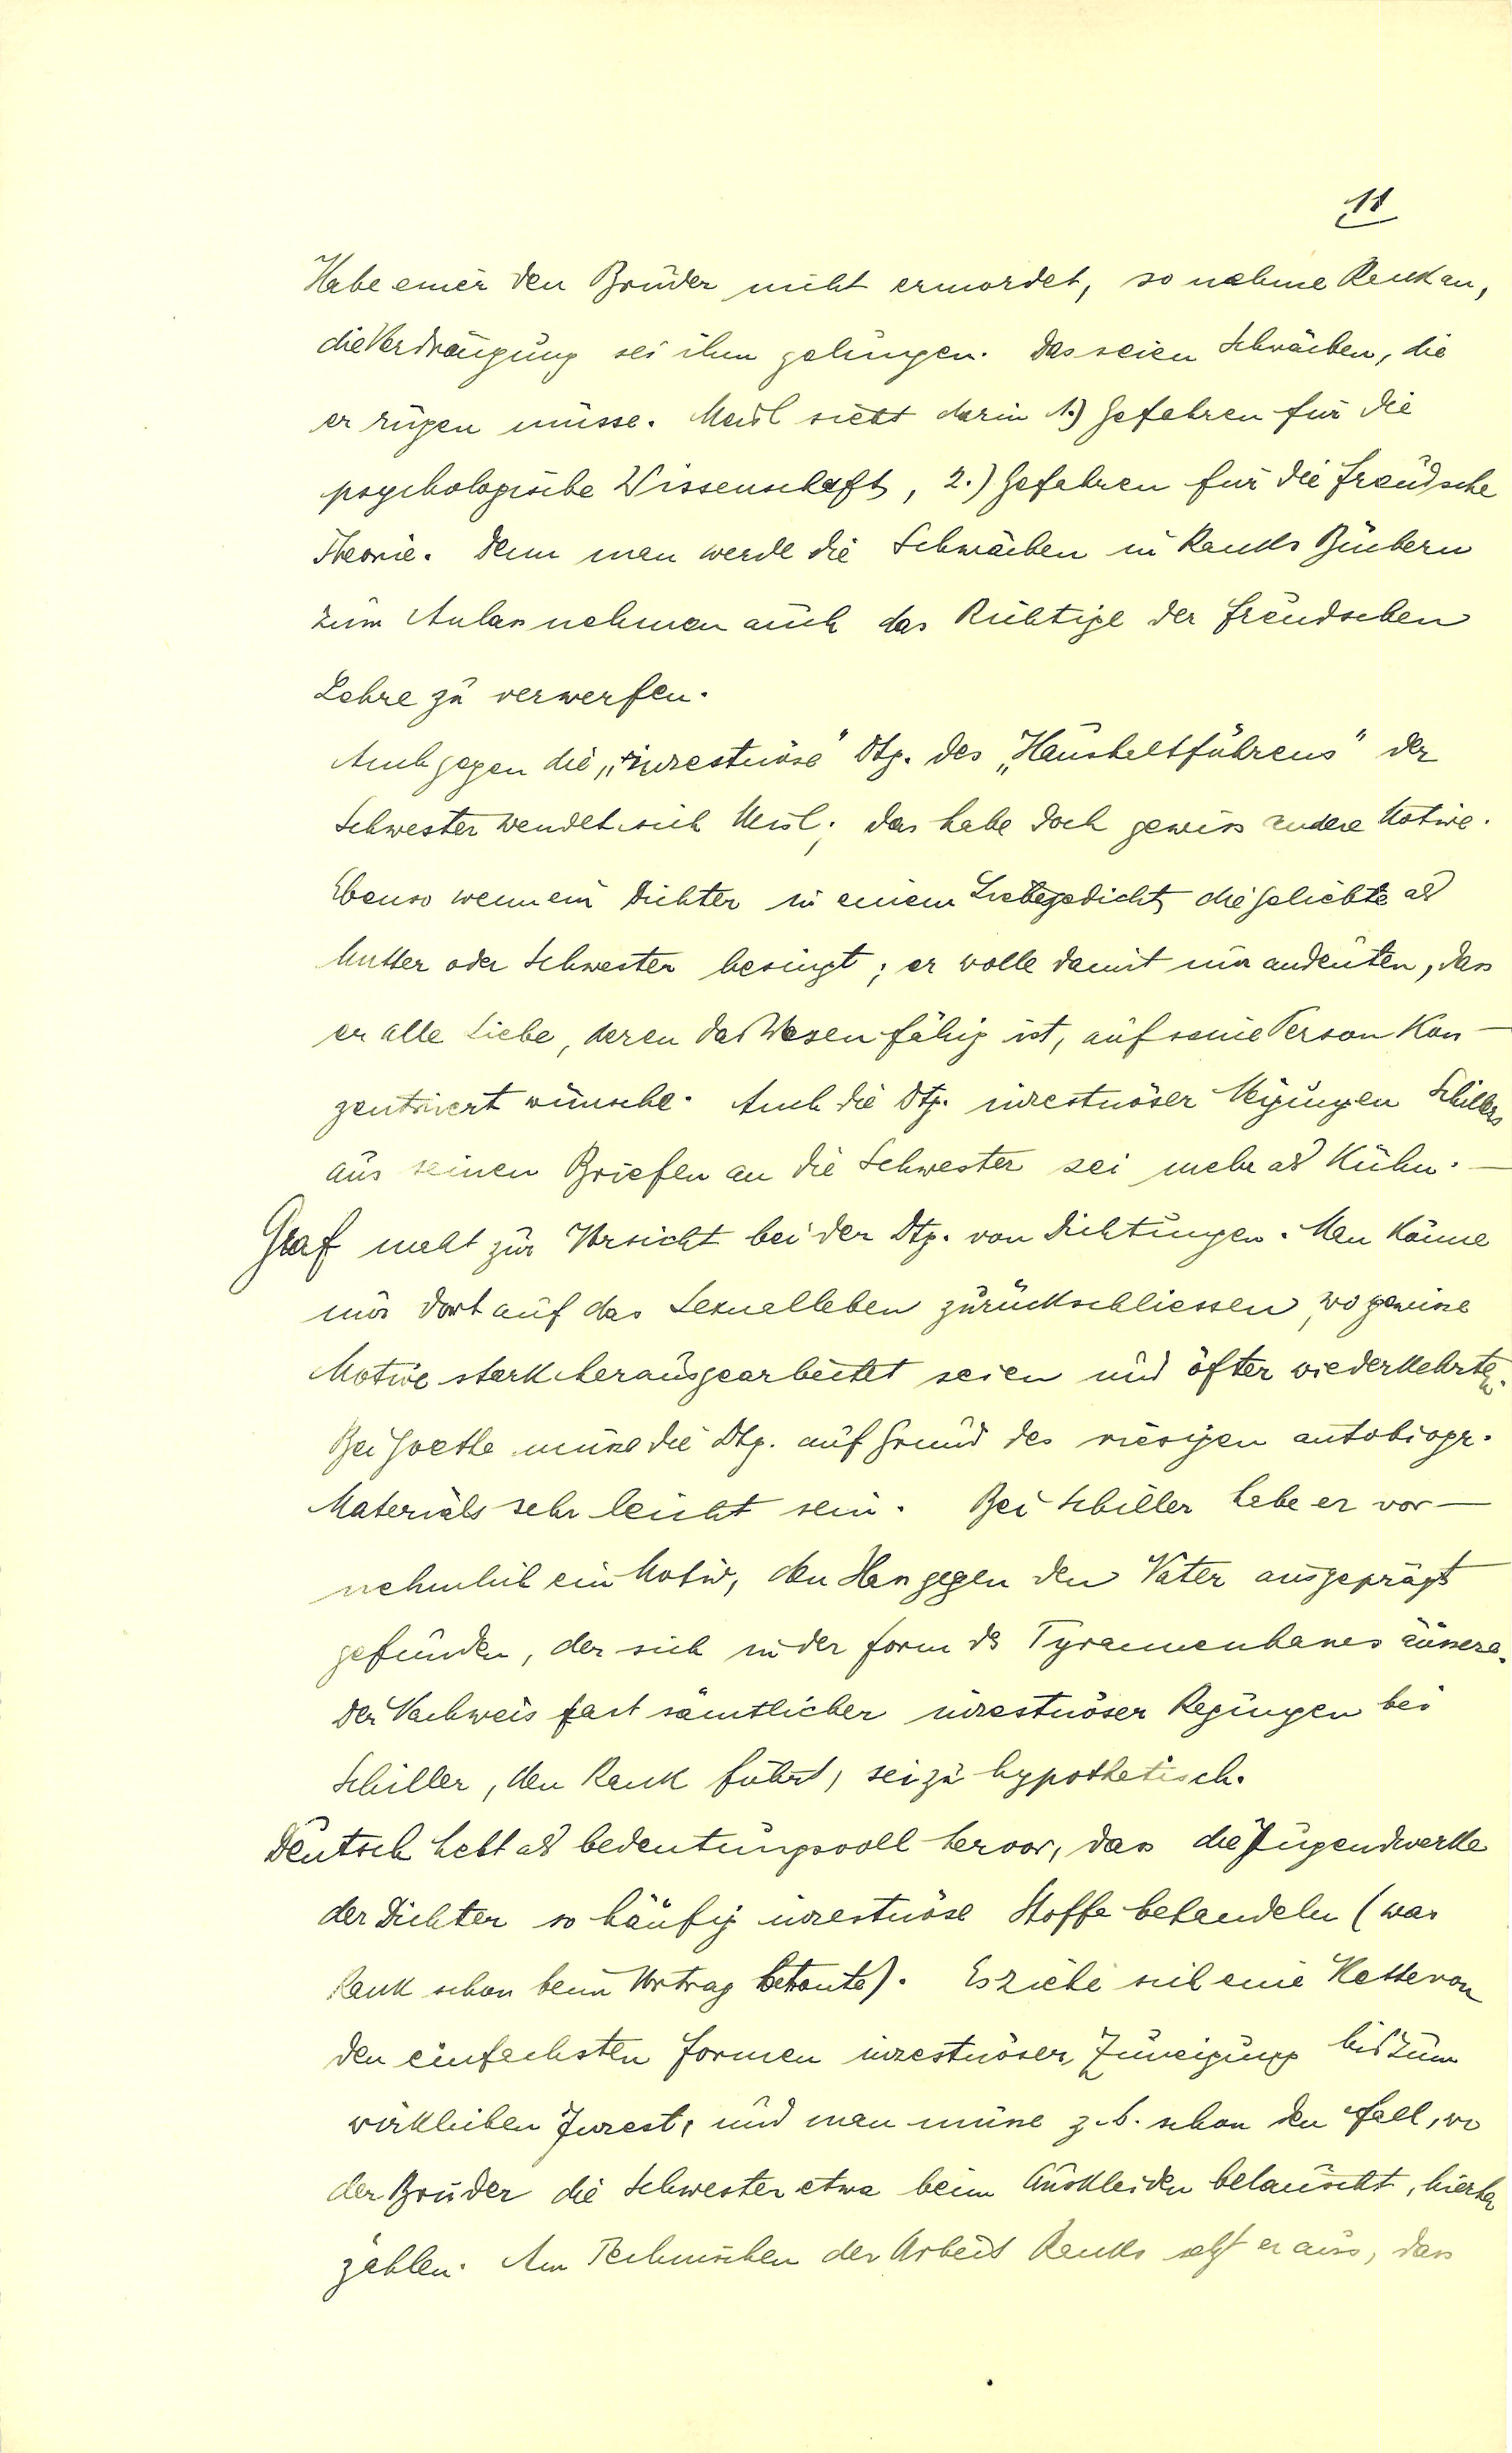 11
Habe einer den Bruder nicht ermordet, so nehme Rank an,
die Verdrängung sei ihm gelungen. Das seien Schwächen, die
er rügen müsse. Meisl sieht darin 1.) Gefahren für die
psychologische Wissenschaft, 2.) Gefahren für die Freudsche
Theorie. Denn man werde die Schwächen in Ranks Büchern
zum Anlass nehmen auch das Richtige der Freudschen
Lehre zu verwerfen.
Auch gegen die „inzestuöse" Dtg. des „Haushaltführens" der
Schwester wendet sich Meisl; das habe doch gewiss andere Motive.
Ebenso wenn ein Dichter in einem Liebesgedicht die Geliebte als
Mutter oder Schwester besingt; er wolle damit nur andeuten, dass
er alle Liebe, deren das Wesen fähig ist, auf seine Person kon-
zentriert wünsche. Auch die Dtg. inzestuöser Neigungen Schillers
aus seinen Briefen an die Schwester sei mehr als kühn. —
Graf maht zur Vorsicht bei der Dtg. von Dichtungen. Man könne
nur dort auf das Sexualleben zurückschliessen, wo gewisse
Motive stark herausgearbeitet seien und öfter wiederkehrten.
Bei Goethe müsse die Dtg. auf Grund des riesigen autobiogr.
Materials sehr leicht sein. Bei Schiller habe er vor-
nehmlich ein Motiv, den Hass gegen den Vater ausgeprägt
gefunden, der sich in der Form des Tyrannenhasses äussere.
Der Nachweis fast sämtlicher inzestuöser Regungen bei
Schiller, den Rank führt, sei zu hypothetisch.
Deutsch hebt als bedeutungsvoll hervor, dass die Jugendwerke
der Dichter so häufig inzestuöse Stoffe behandeln (was
Rank schon beim Vortrag betonte). Es ziehe sich eine Kette von
den einfachsten Formen inzestuöser Zuneigung bis zum
wirklichen Inzest, und man müsse z. b. schon den Fall, wo
der Bruder die Schwester etwa beim Auskleiden belauscht, hierher
zählen. Am Technischen der Arbeit Ranks setzt er aus, dass